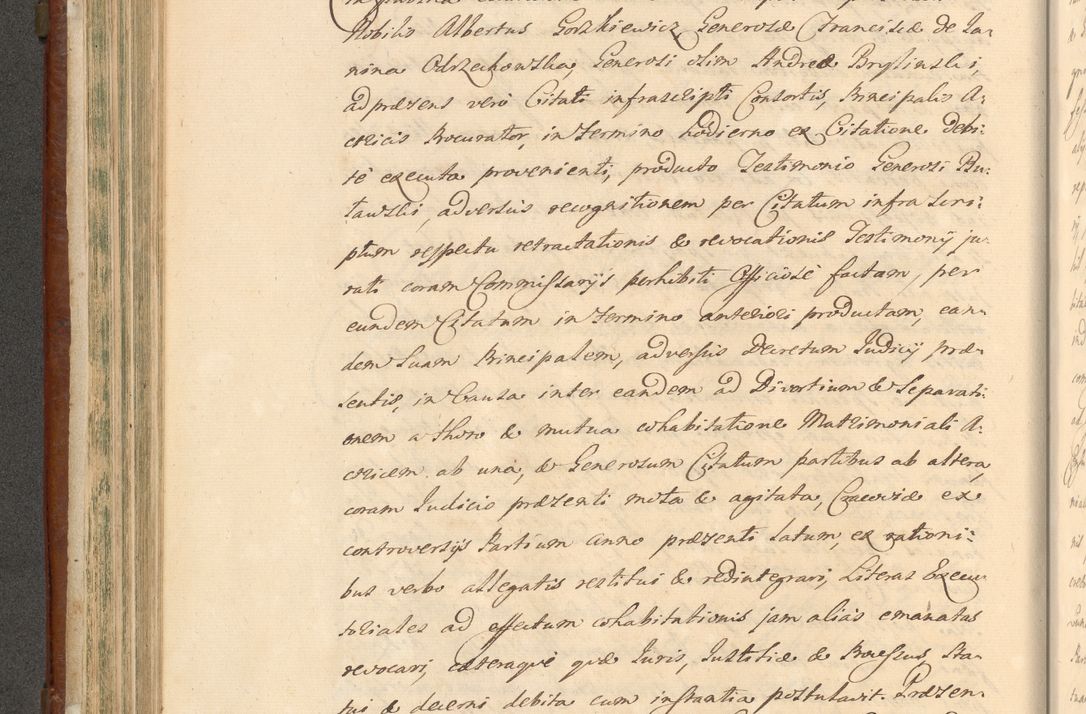 Nobilis Albertus Gorzkiewicz Generosæ Franciscæ de Ja-
nina Odrzechowska, Generosi olim Andreæ Brylinski,
ad præsens verò Citati infrascripti Consortis, Principalis A-
ctricis Procurator, in Termino hodierno ex Citatione debi-
tè executa provenienti, producto Testimonio Generosi Pu-
tawski, adversus recognitionem per Citatum infra scri-
ptum respectu retractationis & revocationis Testimonij ju-
rati coram Commissarijs perhibiti Officiosè factam, per
eundem Citatum in Termino anteriori productam, ean-
dem Suam Principalem, adversus Decretum Judicij præ-
sentis, in Causa inter eandem ad Divortium & Separati-
onem a thoro & mutua cohabitatione Matrimoniali A-
ctricem ab una, & Generosum Citatum partibus ab altera,
coram Judicio præsenti mota & agitata, Cracoviæ ex
controversijs Partium anno præsenti latum, ex rationi-
bus verbo allegatis restitui & redintegrari, Literas Execu-
toriales ad effectum cohabitationis jam alias emanatas
revocari, cæteraque quæ Juris, Justitiæ & Processus, Sta-
tui & decerni debita cum instantia postulavit. Præsen-